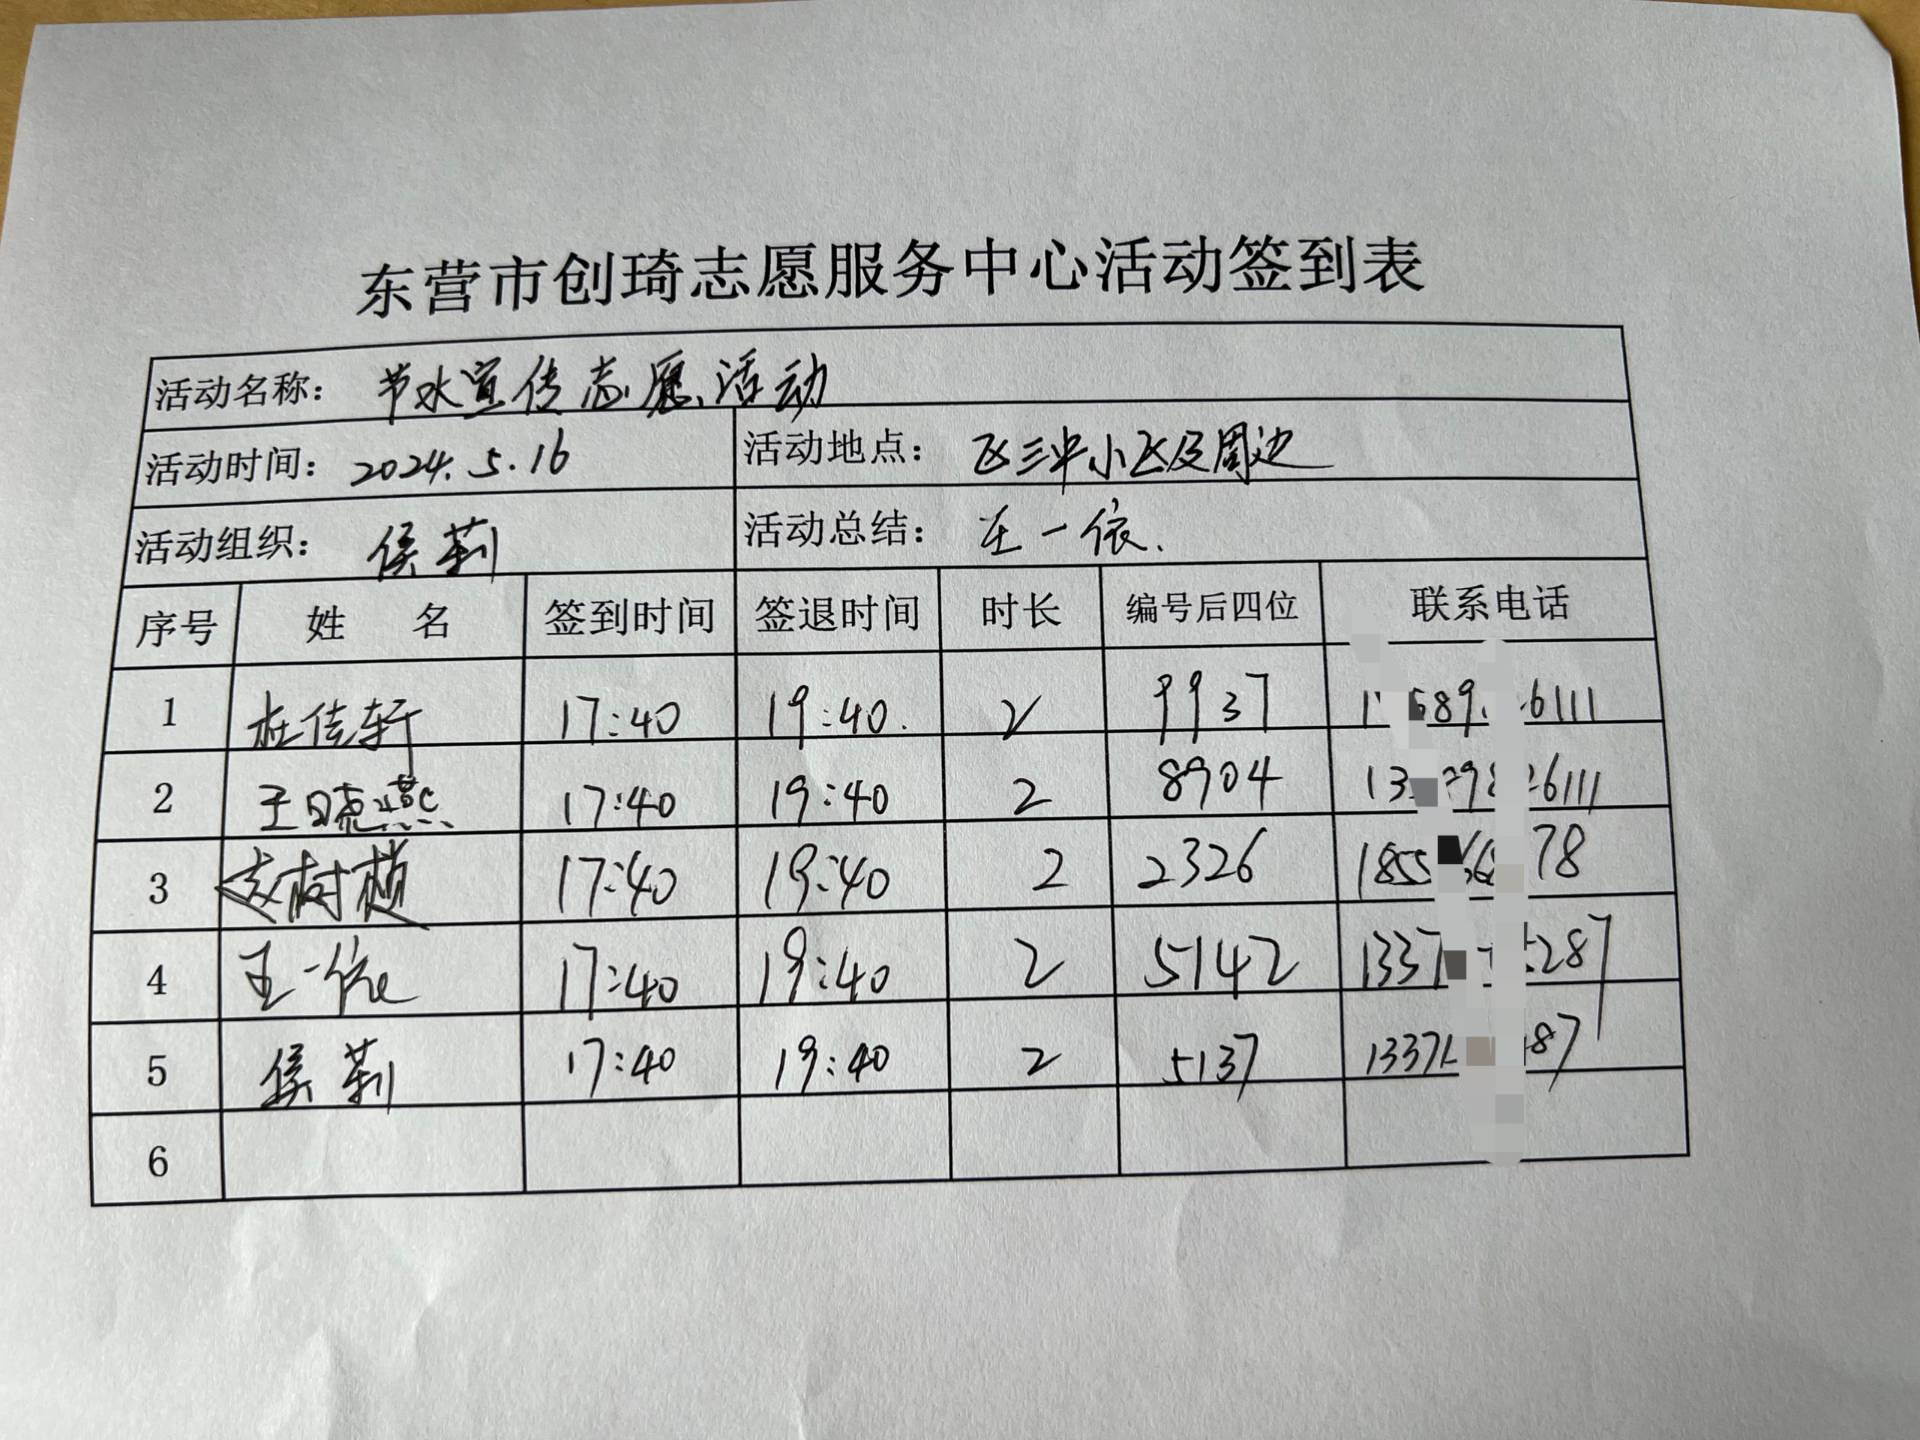 东营市创琦志愿服务中心活动签到表
活动名称： 节水宣传志愿活动
活动时间： 2024.5.16 活动地点： 区三中小区及周边
活动组织： 侯莉 活动总结： 王一依.
序号 姓 名 签到时间 签退时间 时长 编号后四位 联系电话
1 杜佳轩 17:40 19:40. 2 9937 6111
2 王晓燕 17:40 19:40 2 8904 13 6111
3 赵树桢 17:40 19:40 2 2326 1855 78
4 王一依 17:40 19:40 2 5142 1337 287
5 侯莉 17:40 19:40 2 5137 1337 87
6